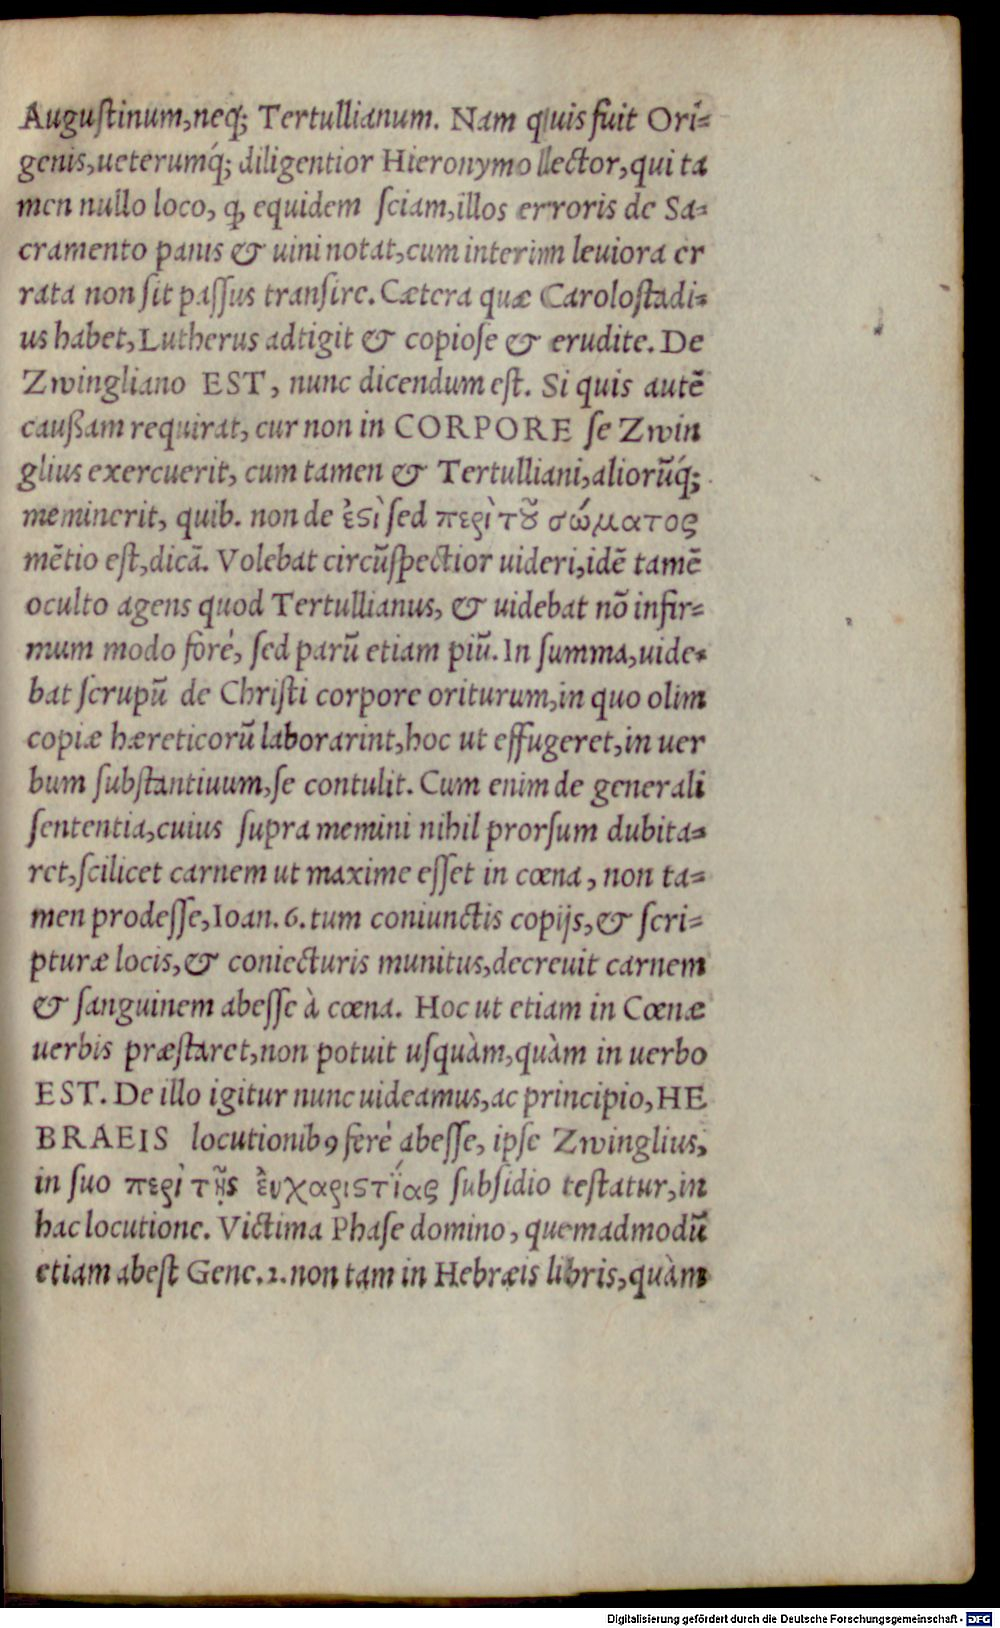 Auguſtinum,neq́; Tertullianum. Nam quis fuit Ori⸗
genis,ueterumq́; diligentior Hieronymo lector,qui ta
men nullo loco, ꝙ equidem ſciam,illos erroris de Sa⸗
cramento panis & uini notat,cum interim leuiora er
rata non ſit paſſus tranſire. Cætera quæ Caroloſtadi⸗
us habet, Lutherus adtigit & copioſe & erudite. De
Zwingliano EST, nunc dicendum eſt. Si quis autē
caußam requirat, cur non in CORPORE ſe Zwin
glius exercuerit, cum tamen & Tertulliani,aliorūq́;
meminerit, quib. non de ἐϛὶ ſed περὶ τȣ͂ σώματος
mētio eſt,dicā. Volebat circūſpectior uideri,idē tamē
oculto agens quod Tertullianus, & uidebat nō infir⸗
mum modo foré, ſed parū etiam piū. In ſumma,uide⸗
bat ſcrupū de Chriſti corpore oriturum,in quo olim
copiæ hæreticorū laborarint,hoc ut effugeret,in uer
bum ſubſtantiuum,ſe contulit. Cum enim de generali
ſententia,cuius ſupra memini nihil prorſum dubita⸗
ret,ſcilicet carnem ut maxime eſſet in cœna, non ta⸗
men prodeſſe,Ioan. 6. tum coniunctis copijs,& ſcri⸗
pturæ locis,& coniecturis munitus,decreuit carnem
& ſanguinem abeſſe à cœna. Hoc ut etiam in Cœnæ
uerbis præſtaret,non potuit uſquàm,quàm in uerbo
EST. De illo igitur nunc uideamus,ac principio, HE
BRAEIS locutionibꝰ feré abeſſe, ipſe Zwinglius,
in ſuo περὶ τῆς ἐυχαριϛΐας ſubſidio teſtatur,in
hac locutione. Victima Phaſe domino, quemadmodū
etiam abeſt Gene. 2. non tam in Hebræis libris,quàm
Digitalisierung gefördert durch die Deutsche Forschungsgemeinschaft - DFG